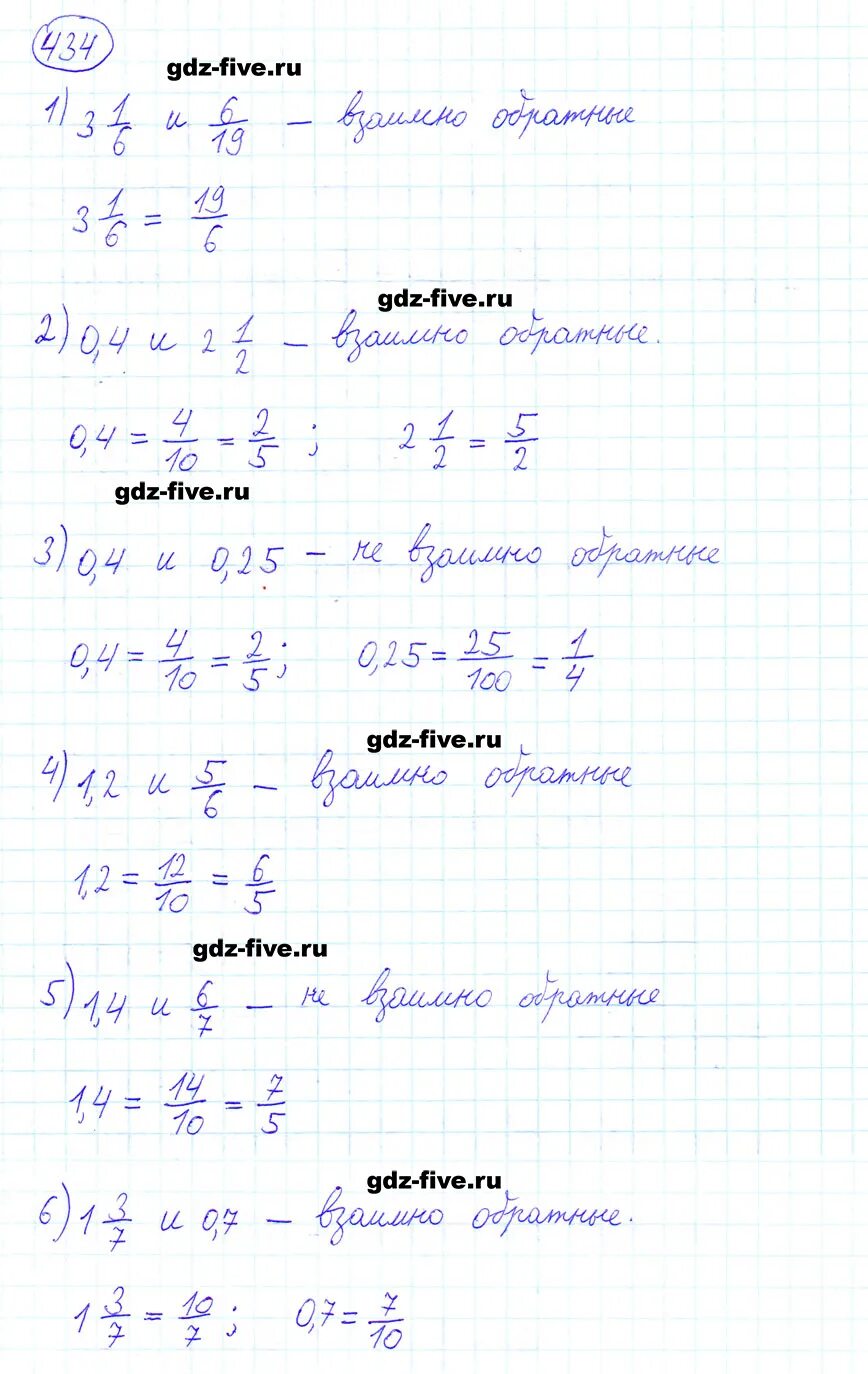 434
gdz-five.ru
1) 3 1/6 и 6/19 — взаимно обратные
3 1/6 = 19/6
gdz-five.ru
2) 0,4 и 2 1/2 — взаимно обратные.
0,4 = 4/10 = 2/5 ; 2 1/2 = 5/2
gdz-five.ru
3) 0,4 и 0,25 — не взаимно обратные
0,4 = 4/10 = 2/5 ; 0,25 = 25/100 = 1/4
gdz-five.ru
4) 1,2 и 5/6 — взаимно обратные
1,2 = 12/10 = 6/5
gdz-five.ru
5) 1,4 и 6/7 — не взаимно обратные
1,4 = 14/10 = 7/5
gdz-five.ru
6) 1 3/7 и 0,7 — взаимно обратные.
1 3/7 = 10/7 ; 0,7 = 7/10